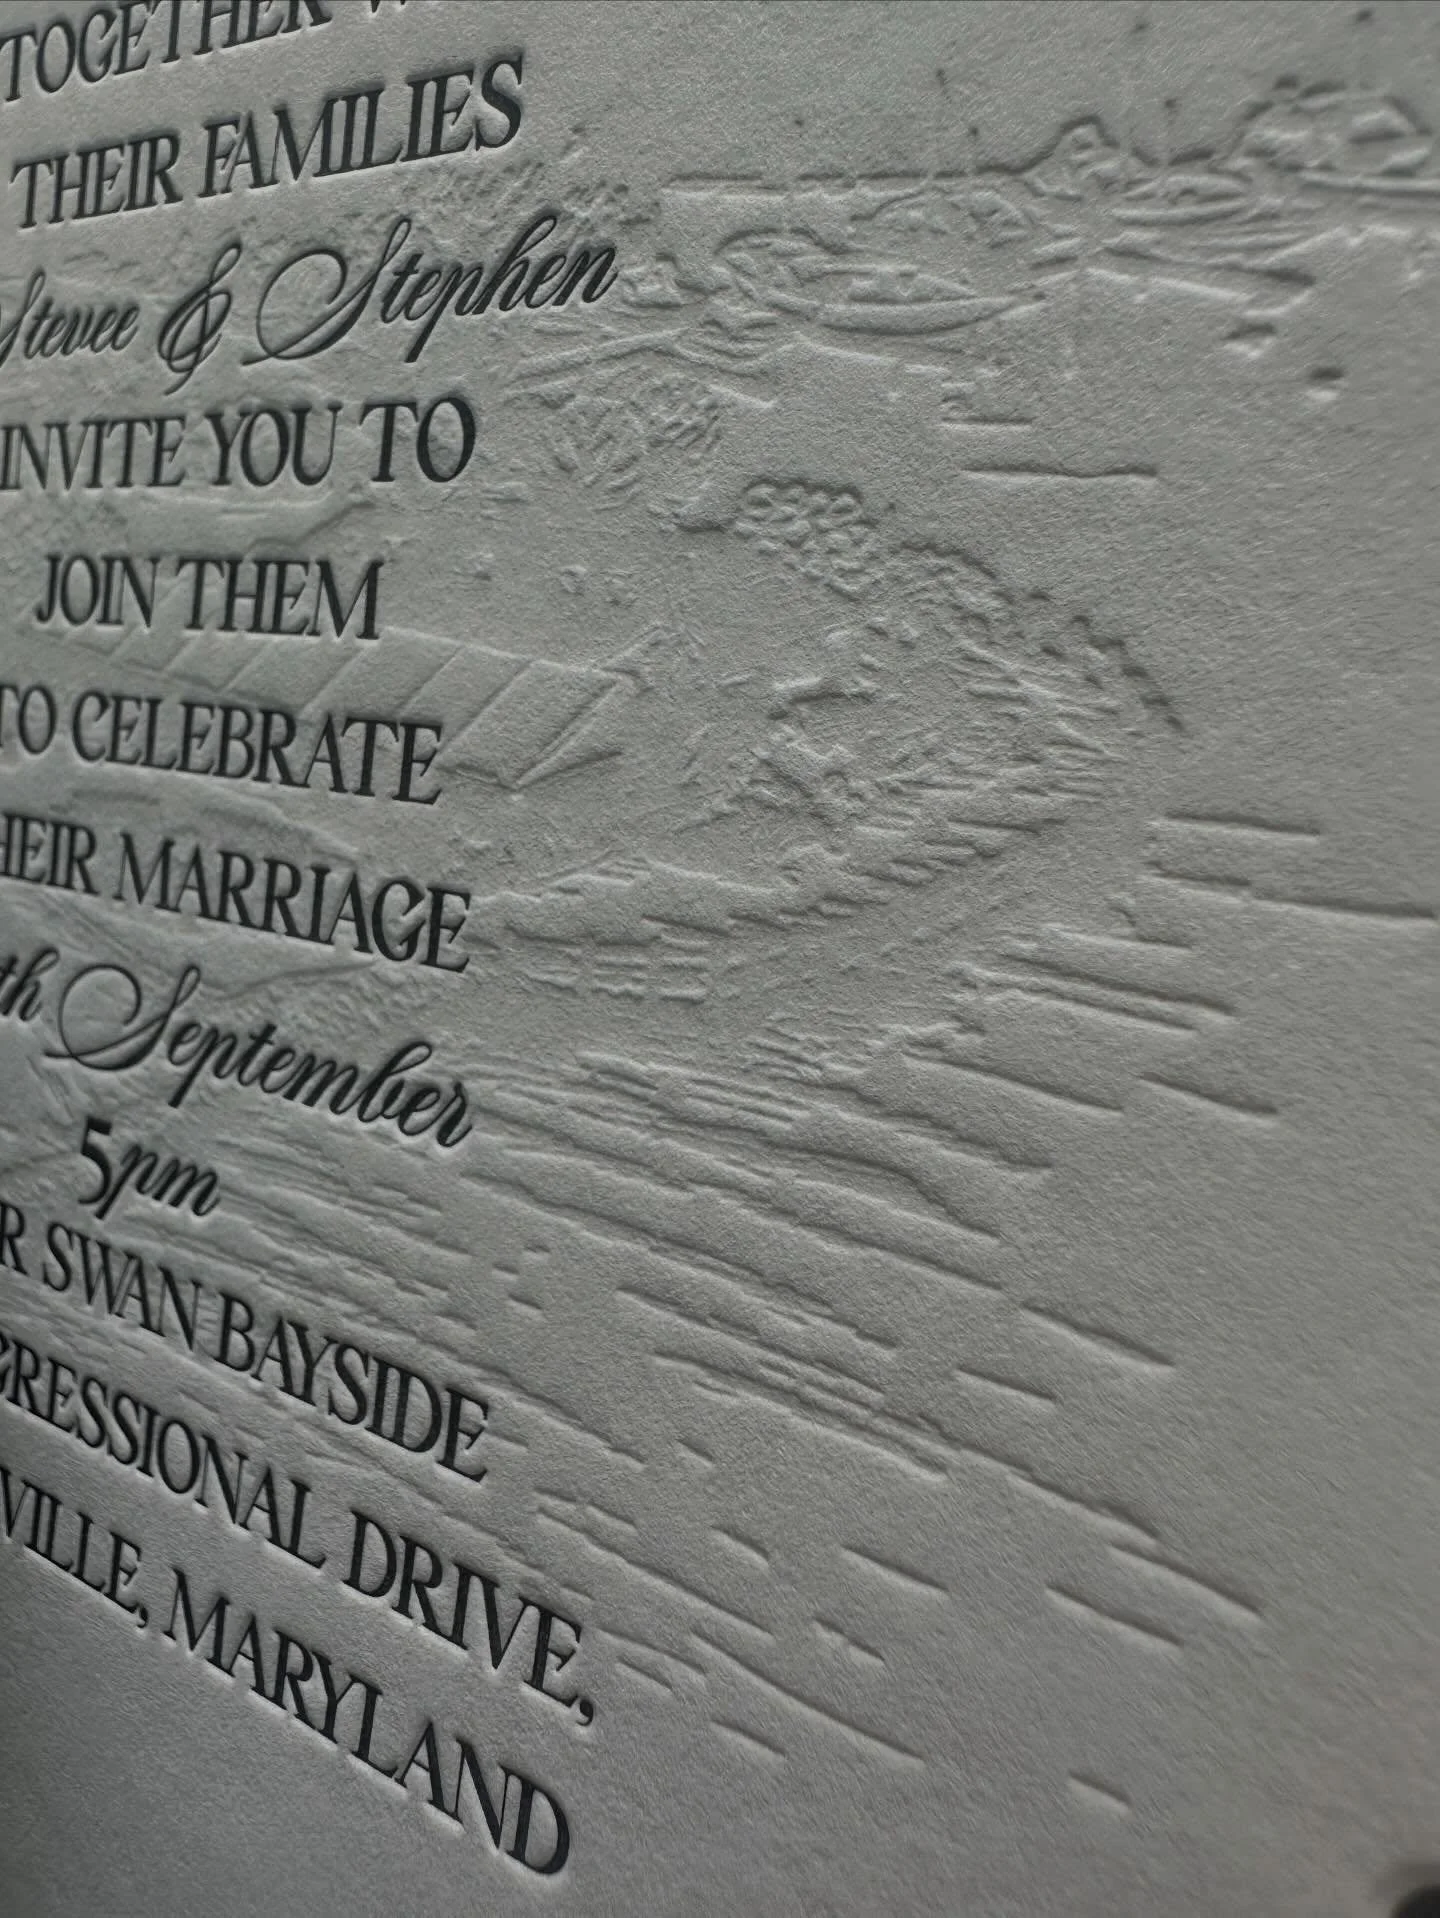 TOGETHER W
THEIR FAMILIES
Stevee & Stephen
INVITE YOU TO
JOIN THEM
TO CELEBRATE
HEIR MARRIAGE
th September
5pm
R SWAN BAYSIDE
GRESSIONAL DRIVE,
VILLE, MARYLAND